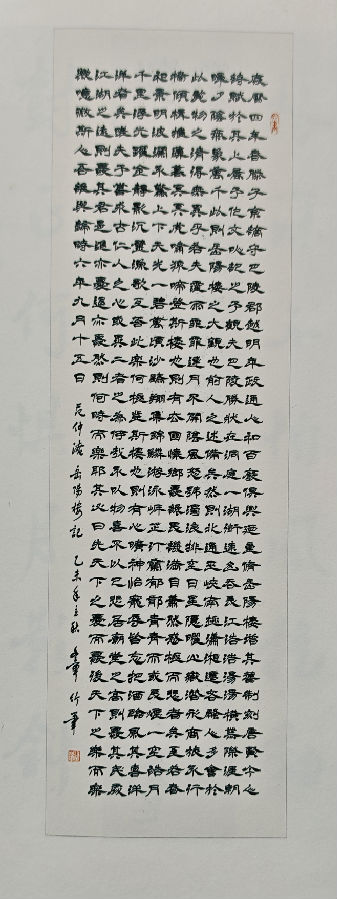 慶曆四年春滕子京謫守巴陵郡越明年政通人和百廢俱興迺重脩岳陽樓增其舊制刻唐賢今人
詩賦於其上屬予作文以記之予觀夫巴陵勝狀在洞庭一湖銜遠山吞長江浩浩湯湯橫無際涯朝
暉夕陰氣象萬千此則岳陽樓之大觀也前人之述備矣然則北通巫峽南極瀟湘遷客騷人多會於
此覽物之情得無異乎若夫霪雨霏霏連月不開陰風怒號濁浪排空日星隱曜山嶽潛形商旅不行
檣傾楫摧薄暮冥冥虎嘯猿啼登斯樓也則有去國懷鄉憂讒畏譏滿目蕭然感極而悲者矣至若春
和景明波瀾不驚上下天光一碧萬頃沙鷗翔集錦鱗游泳岸芷汀蘭郁郁青青而或長煙一空皓月
千里浮光躍金靜影沉璧漁歌互答此樂何極登斯樓也則有心曠神怡寵辱皆忘把酒臨風其喜洋
洋者矣嗟夫予嘗求古仁人之心或異二者之為何哉不以物喜不以己悲居廟堂之高則憂其民處
江湖之遠則憂其君是進亦憂退亦憂然則何時而樂耶其必曰先天下之憂而憂後天下之樂而樂
歟噫微斯人吾誰與歸時六年九月十五日 范仲淹岳陽樓記 乙未年立秋